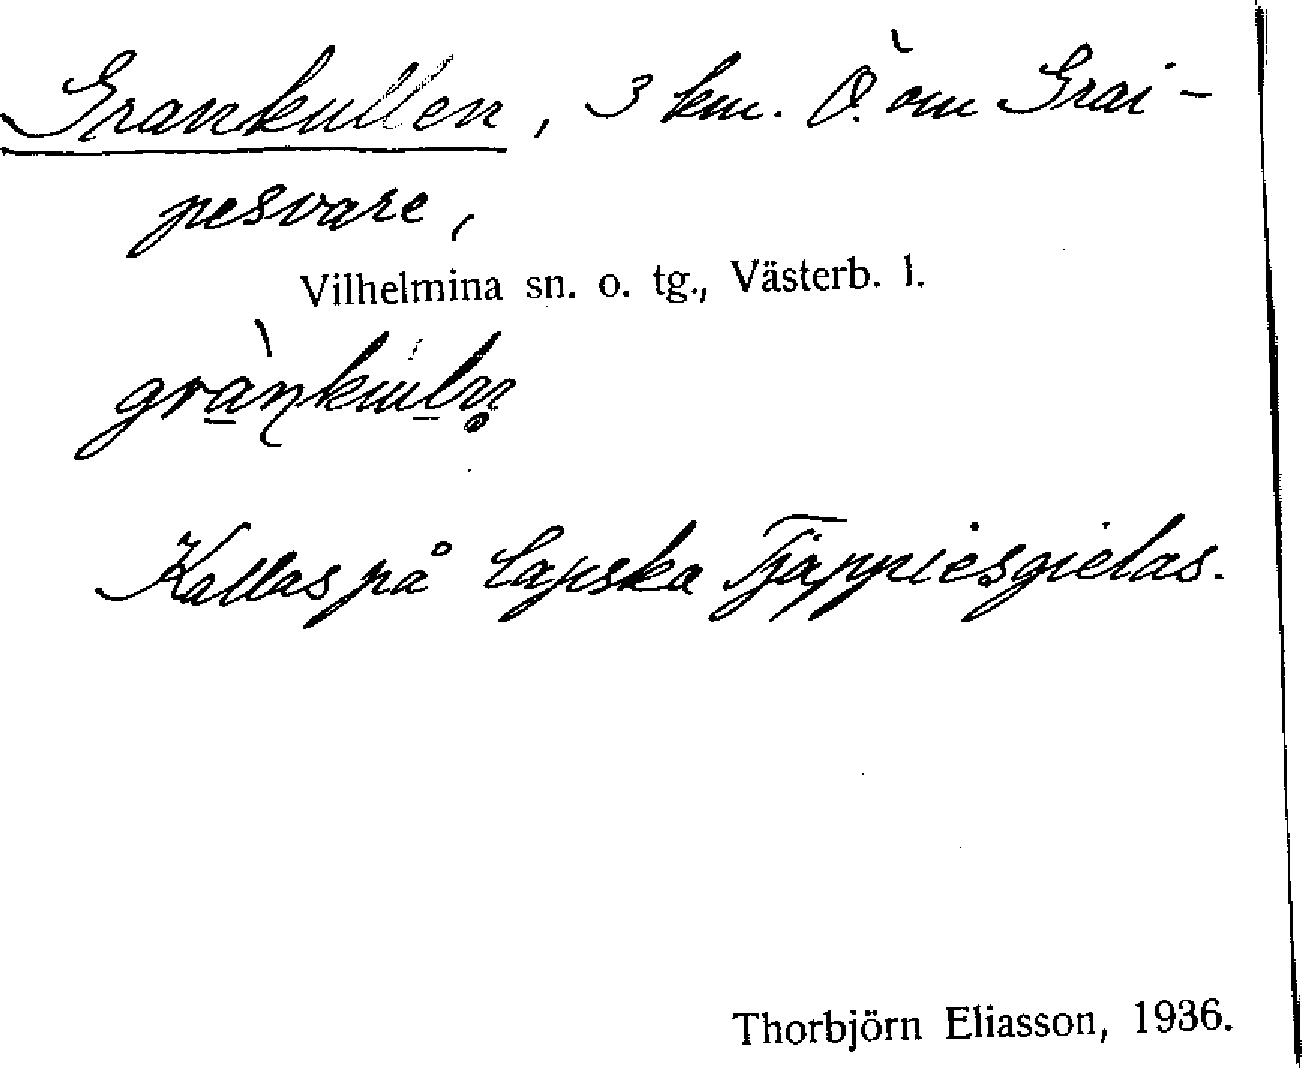 Grankullen, 3 km. Ö. om Grai-
pesvare,
Vilhelmina sn. o. tg., Västerb. l.
Kallas på lapska Tjäppiesgielas.
Thorbjörn Eliasson, 1936.